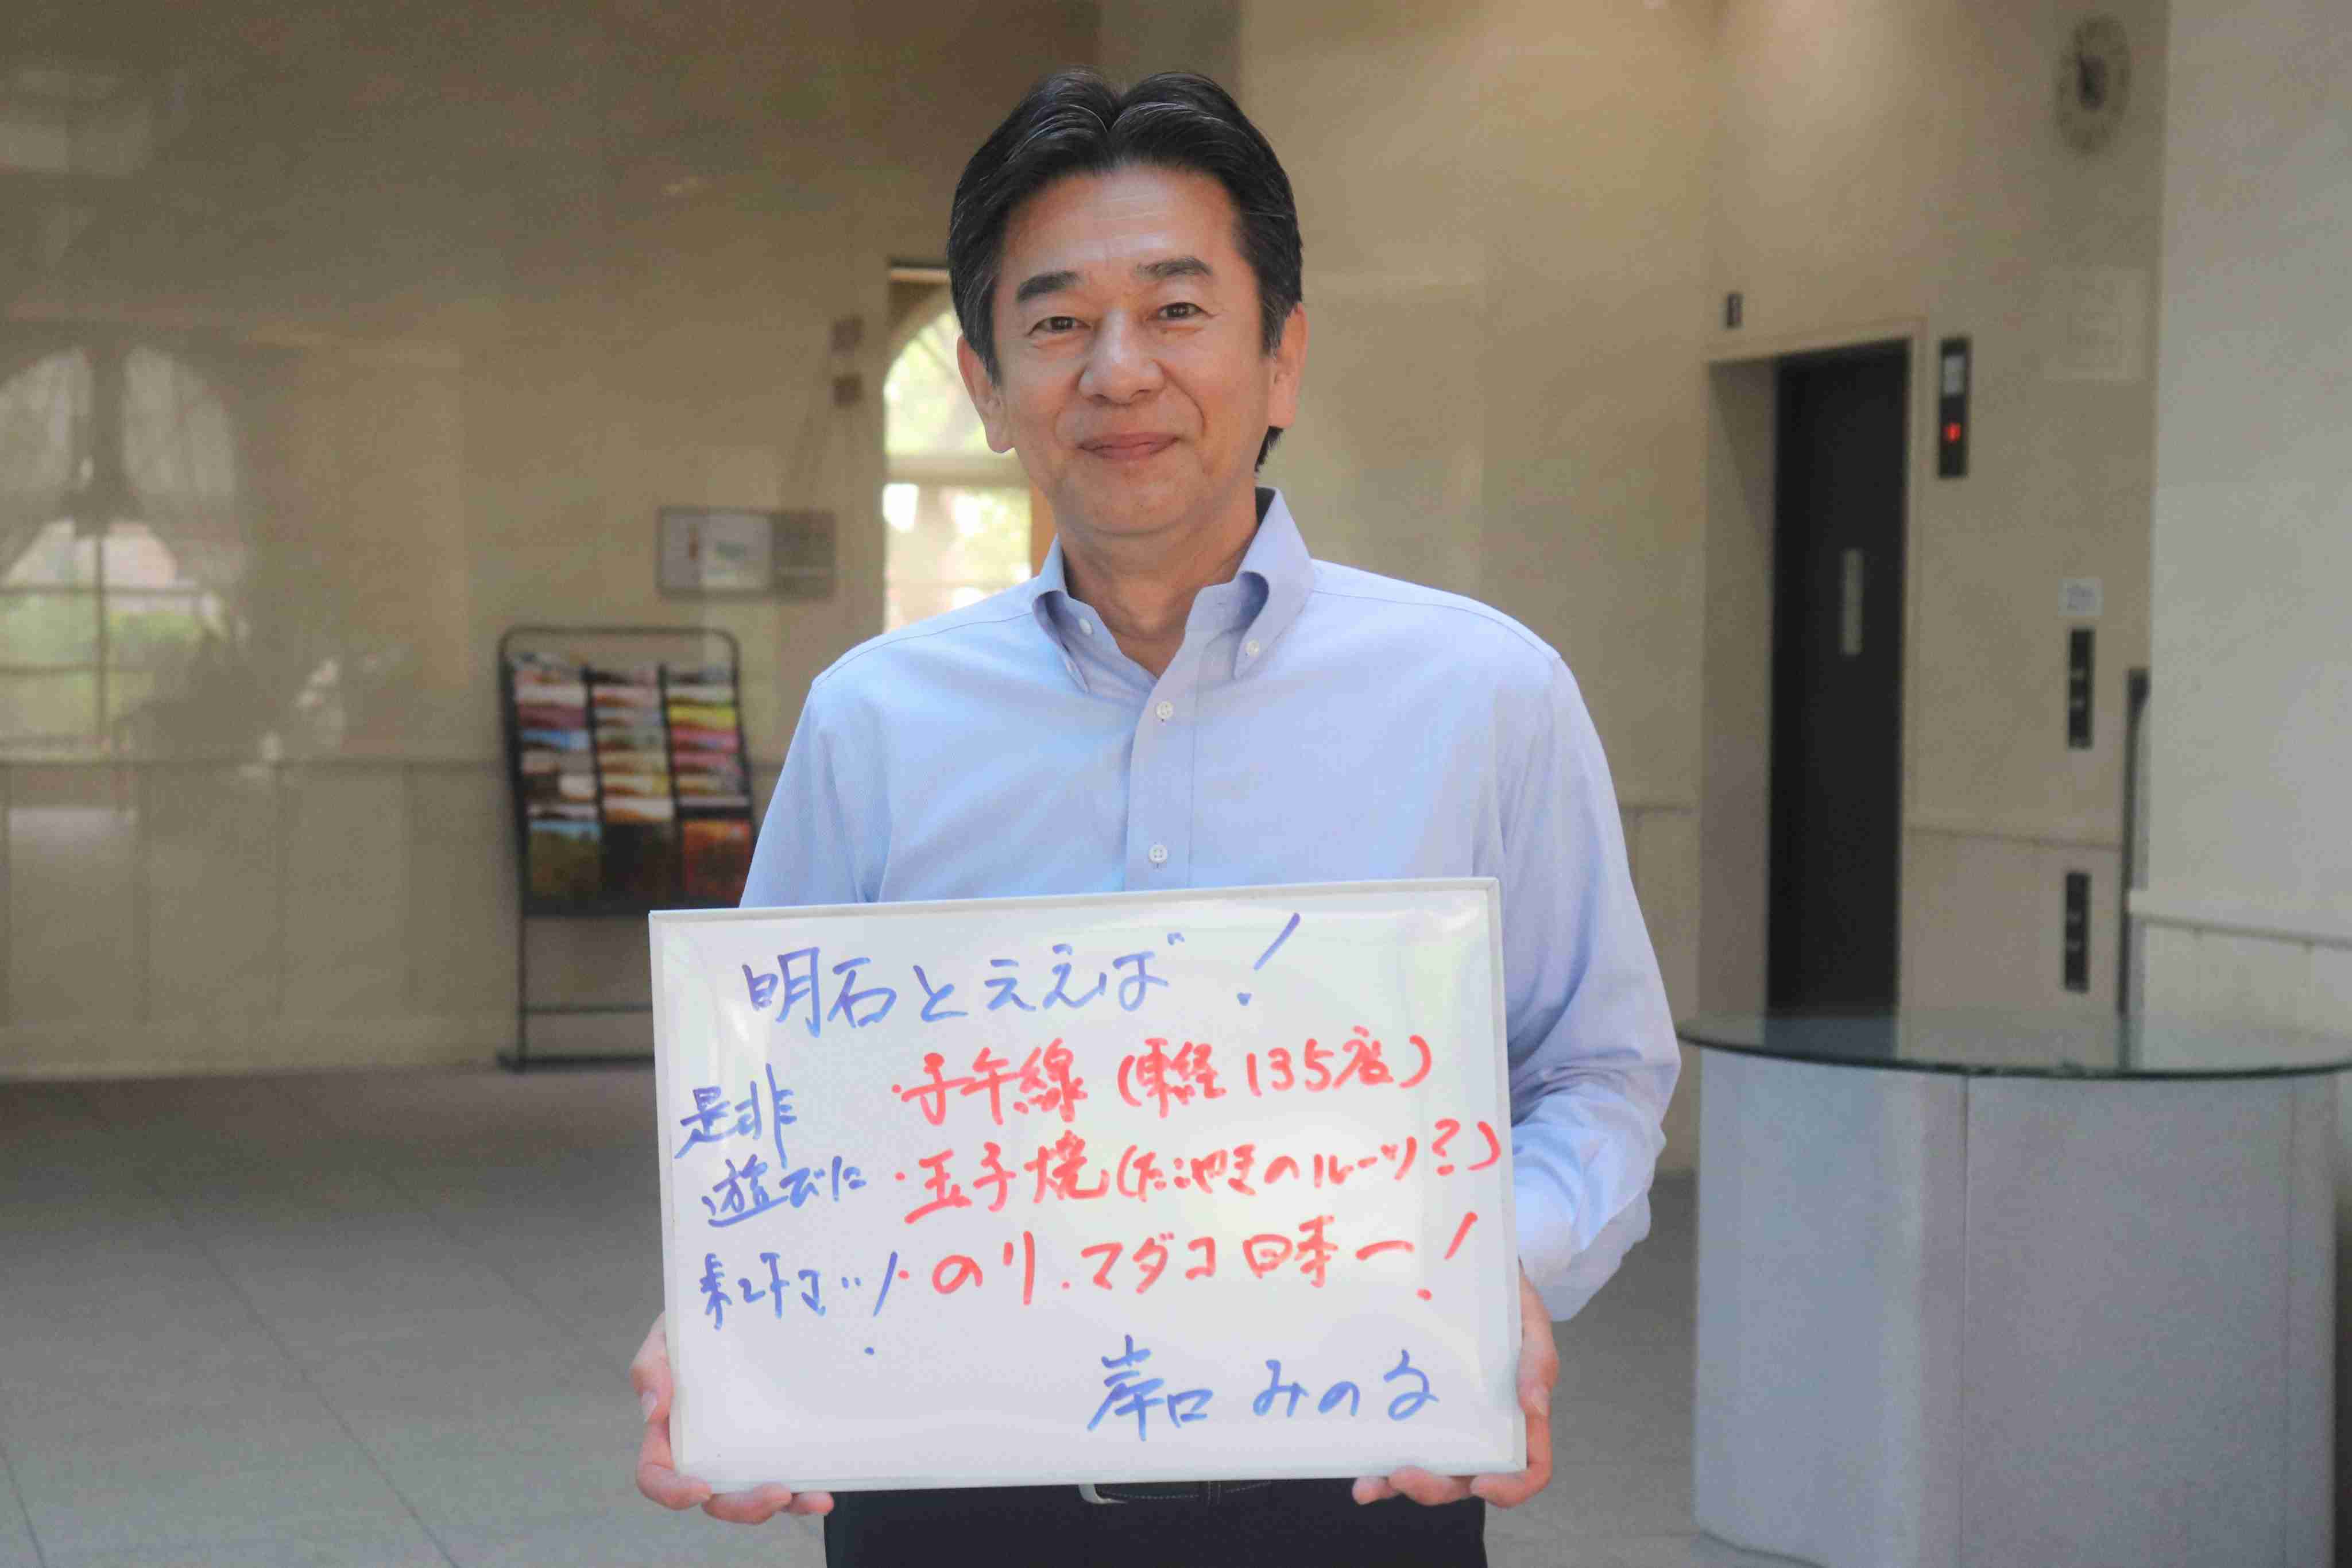 明石とええば!
・子午線(東経135度)
・玉子焼(たこやきのルーツ?)
・のり.マダコ日本一!
是非
遊びに
来て下さい!
岸口 みのる